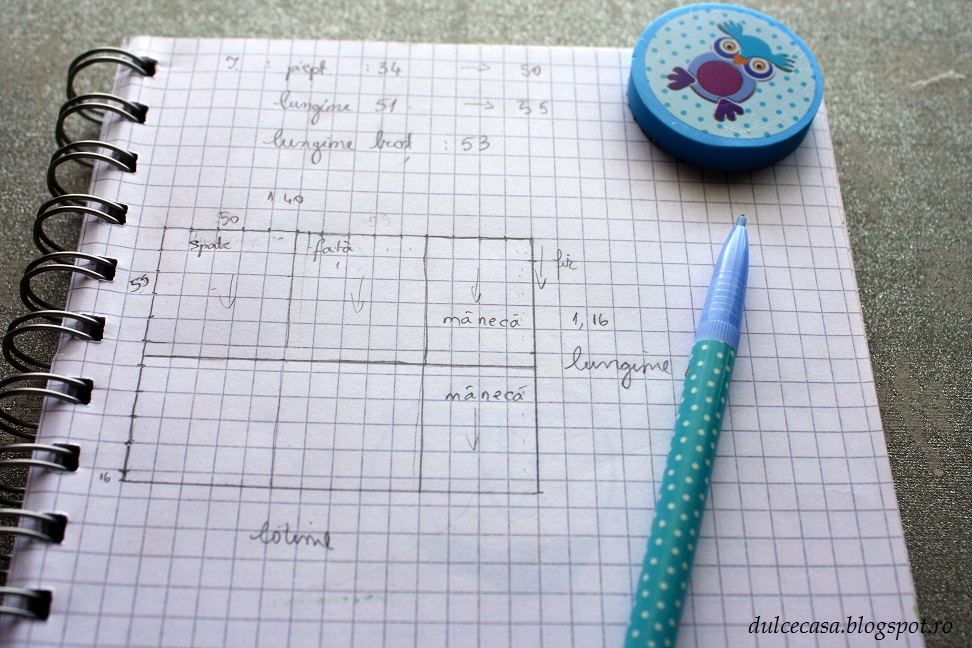 J. : piept : 34 → 50
lungime 51 → 55
lungime braț : 53
1 40
50
spate față
55
fir
mânecă 1,16
lungime
mânecă
16
lățime
dulcecasa.blogspot.ro